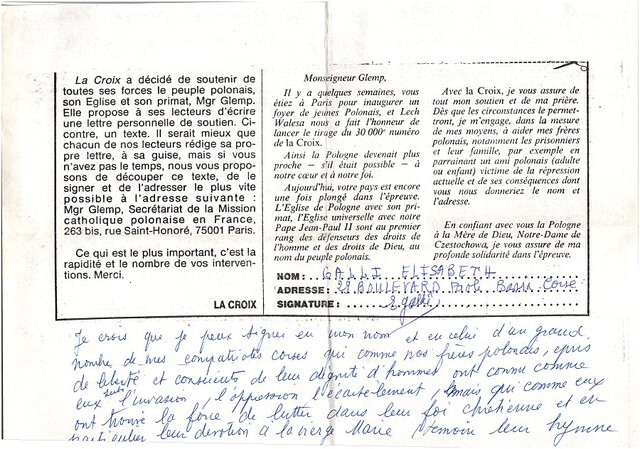 La Croix a décidé de soutenir de
toutes ses forces le peuple polonais,
son Eglise et son primat, Mgr Glemp.
Elle propose à ses lecteurs d'écrire
une lettre personnelle de soutien. Ci-
contre, un texte. Il serait mieux que
chacun de nos lecteurs rédige sa pro-
pre lettre, à sa guise, mais si vous
n'avez pas le temps, nous vous propo-
sons de découper ce texte, de le
signer et de l'adresser le plus vite
possible à l'adresse suivante :
Mgr Glemp, Secrétariat de la Mission
catholique polonaise en France,
263 bis, rue Saint-Honoré, 75001 Paris.
Ce qui est le plus important, c'est la
rapidité et le nombre de vos interven-
tions. Merci.
LA CROIX
Monseigneur Glemp,
Il y a quelques semaines, vous
étiez à Paris pour inaugurer un
foyer de jeunes Polonais, et Lech
Walesa nous a fait l'honneur de
lancer le tirage du 30 000e numéro
de la Croix.
Ainsi la Pologne devenait plus
proche – s'il était possible – à
notre cœur et à notre foi.
Aujourd'hui, votre pays est encore
une fois plongé dans l'épreuve.
L'Eglise de Pologne avec son pri-
mat, l'Eglise universelle avec notre
Pape Jean-Paul II sont au premier
rang des défenseurs des droits de
l'homme et des droits de Dieu, au
nom du peuple polonais.
Avec la Croix, je vous assure de
tout mon soutien et de ma prière.
Dès que les circonstances le permet-
tront, je m'engage, dans la mesure
de mes moyens, à aider mes frères
polonais, notamment les prisonniers
et leur famille, par exemple en
parrainant un ami polonais (adulte
ou enfant) victime de la répression
actuelle et de ses conséquences dont
vous nous donneriez le nom et
l'adresse.
En confiant avec vous la Pologne
à la Mère de Dieu, Notre-Dame de
Czestochowa, je vous assure de ma
profonde solidarité dans l'épreuve.
NOM : GALLI ELISABETH
ADRESSE : 28 BOULEVARD Paoli Bastia Corse
SIGNATURE : E galli
Je crois que je peux signer en mon nom et en celui d'un grand
nombre de mes compatriotes corses qui comme nos frères polonais, épris
de liberté et conscients de leur dignité d'hommes ont connu comme
eux l'invasion, l'oppression l'écartèlement, mais qui comme eux
ont trouvé la force de lutter dans leur foi chrétienne et en
particulier leur dévotion à la vierge Marie témoin leur hymne